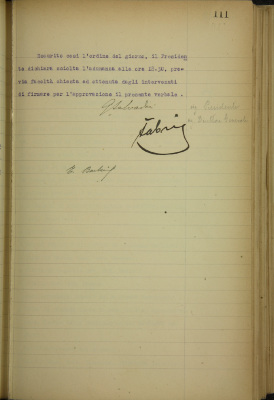 111
Esaurito così l'ordine del giorno, il Presiden
te dichiara sciolta l'adunanza alle ore 12.30, pre-
via facoltà chiesta ed ottenuta dagli intervenuti
di firmare per l'approvazione il presente verbale.
G. Salvadi
Fabri